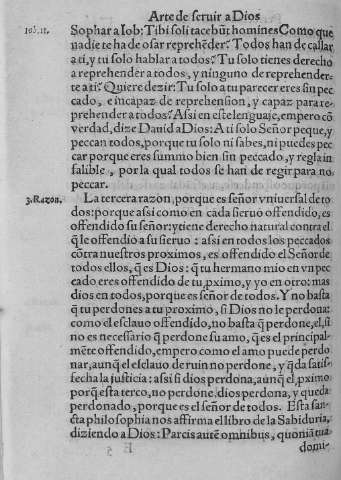 Arte de seruir a Dios
Iob. 11. Sophar a Iob: Tibi soli tacebūt hominesComo que
nadie te ha de osar reprehēder? Todos han de callar
a ti, y tu solo hablar a todos? Tu solo tienes derecho
a reprehender a todos, y ninguno de reprehender-
te a ti? Quiere dezir: Tu solo a tu parecer eres sin pec
cado, e incapaz de reprehension, y capaz para re-
prehender a todos? Assi en este lenguaje, empero cō
verdad, dize Dauid a Dios: A ti solo Señor peque, y
peccan todos, porque tu solo ni sabes, ni puedes pec
car porque eres summo bien sin peccado, y regla in
falible, por la qual todos se han de regir para no
peccar.
3. Razon. La tercera razon, porque es señor vniuersal de to-
dos: porque assi como en cada sieruo offendido, es
offendido su señor: y tiene derecho natural contra el
q̄ le offendio a su sieruo: assi en todos los peccados
cōtra nuestros proximos, es offendido el Señor de
todos ellos, q̄ es Dios: q̄ tu hermano mio en vn pec
cado eres offendido de tu ,pximo, y yo en otro: mas
dios en todos, porque es señor de todos. Y no basta
q̄ tu perdones a tu proximo, si Dios no le perdona:
como el esclauo offendido, no basta q̄ perdone, el, si
no es necessario q̄ perdone su amo, q̄ es el principal-
mēte offendido, empero como el amo puede perdo
nar, aunq̄ el esclauo de ruin no perdone, y q̄da satis-
fecha la justicia: assi si dios perdona, aunq̄ el ,pximo
porq̄ esta terco, no perdone, dios perdona, y queda
perdonado, porque es el señor de todos. Esta san-
cta philosophia nos affirma el libro de la Sabiduria,
diziendo a Dios: Parcis autē omnibus, quoniā tua
E 5 domi-